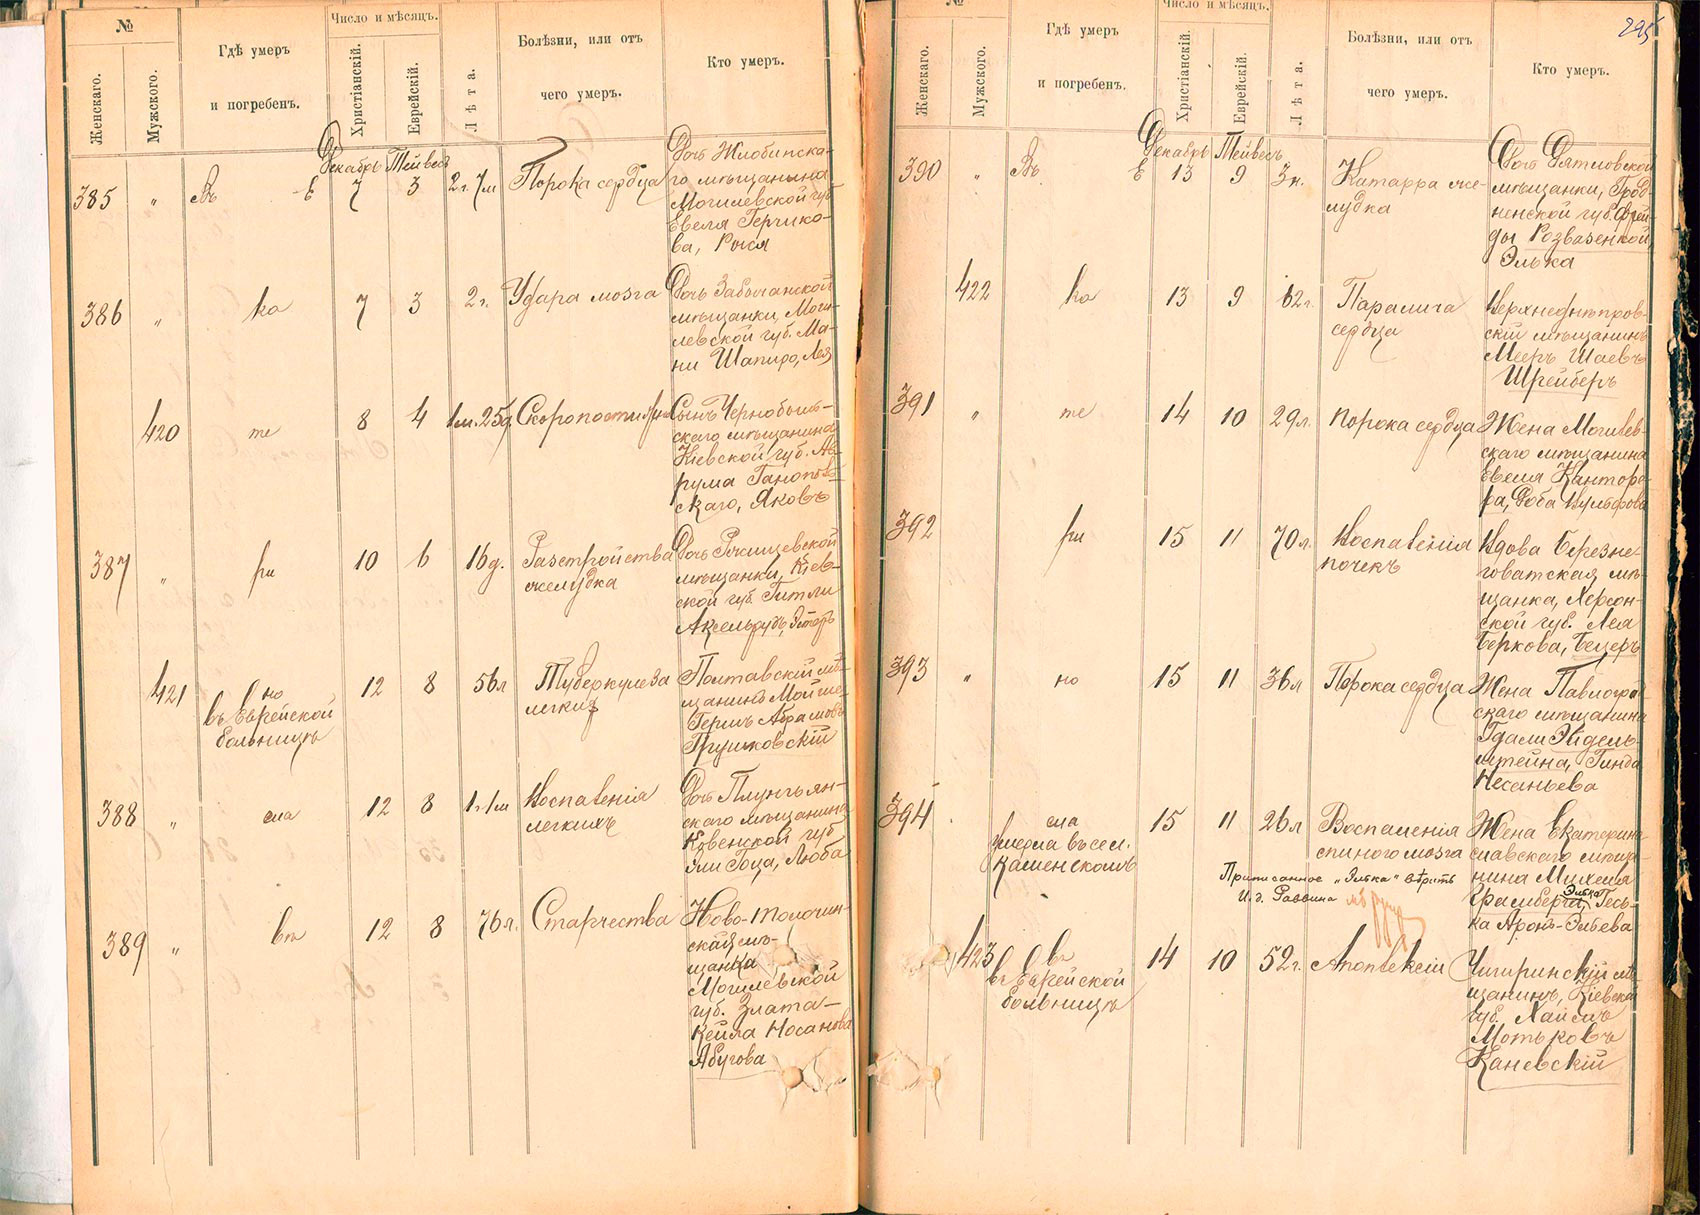 №
Число и мѣсяцъ.
Женскаго.
Мужского.
Гдѣ умеръ
и погребенъ.
Христіанскій.
Еврейскій.
Лѣта.
Болѣзни, или отъ
чего умеръ.
Кто умеръ.
Декабрь Тейвесъ
385 " Въ Е 7 3 2г. 7м Порока сердца
Дочь Жлобинска-
го мѣщанина
Могилевской губ
Евеля Герчико-
ва, Рыся
386 " ка 7 3 2г. Удара мозга
мѣщанки, Моги-
левской губ. Ма-
ни Шапиро, Лея
420 те 8 4 1м. 25д. Скоропостижно
Сынъ Чернобыль-
скаго мѣщанина
Кіевской губ. Ав-
рума
скаго, Яковъ
387 " ри 10 6 16д. Разстройства
желудка
Дочь Ржищевской
мѣщанки, Кіев-
ской губ. Гитли
Аксельрудъ, Эстеръ
421 но
въ Еврейской
больницѣ
12 8 56л Туберкулеза
легкихъ
Полтавскій мѣ-
щанинъ Мойше-
Гершъ Абрамовъ
Грушковскій
388 " сла 12 8 1г. 1м Воспаленія
легкихъ
Дочь Плунгьян-
скаго мѣщанина
Ковенской губ
Эли Гоца, Люба
389 " вѣ 12 8 76л. Старчества
Ново-Толочин-
ская мѣ-
щанка
Могилевской
губ. Злата-
Кейла Носанова
Абугова
295
№
Число и мѣсяцъ.
Женскаго.
Мужского.
Гдѣ умеръ
и погребенъ.
Христіанскій.
Еврейскій.
Лѣта.
Болѣзни, или отъ
чего умеръ.
Кто умеръ.
Декабрь Тейвесъ
390 " Въ Е 13 9 3н. Катарра же-
лудка
Дочь Дятловской
мѣщанки, Грод-
ненской губ. Фрей-
ды Розвазенкой
Элька
422 ка 13 9 62г. Паралича
сердца
Верхнеднѣпров-
скій мѣщанинъ
Мееръ Шаевъ
Шрейберъ
391 " те 14 10 29л. Порока сердца
Жена Могилев-
скаго мѣщанина
Евеля Канторо-
ра, Доба Вульфова
392 ри 15 11 70л. Воспаленія
почекъ
Вдова Березне-
говатская мѣ-
щанка, Херсон-
ской губ. Лея
Беркова, Бецеръ
393 " но 15 11 36л Порока сердца
Жена Павлогра
скаго мѣщанина
Гдали Эйдель-
штейна, Гинда
Несаньева
394 сла
умерла въ сел.
Каменскомъ
15 11 26л Воспаленія
спинного мозга
Жена Екатерино
славскаго мѣща-
нина Михеля
Грамберга, Элька Гесь-
ка Аронъ-Эльева
Приписанное "Элька" вѣрить
И. д. Раввина
423 вѣ
въ Еврейской
больницѣ
14 10 52г. Апоплексіи
Чигиринскій мѣ
щанинъ, Кіевска
губ. Хаимъ
Мотьковъ
Каневскій